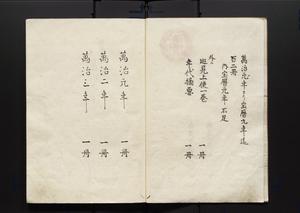 萬治元年ゟ宝暦九年迄
百二冊
内宝暦元年ノ不足
外ニ
巡見上使一巻 一冊
年代摘要 一冊
萬治元年 一冊
萬治二年 一冊
萬治三年 一冊